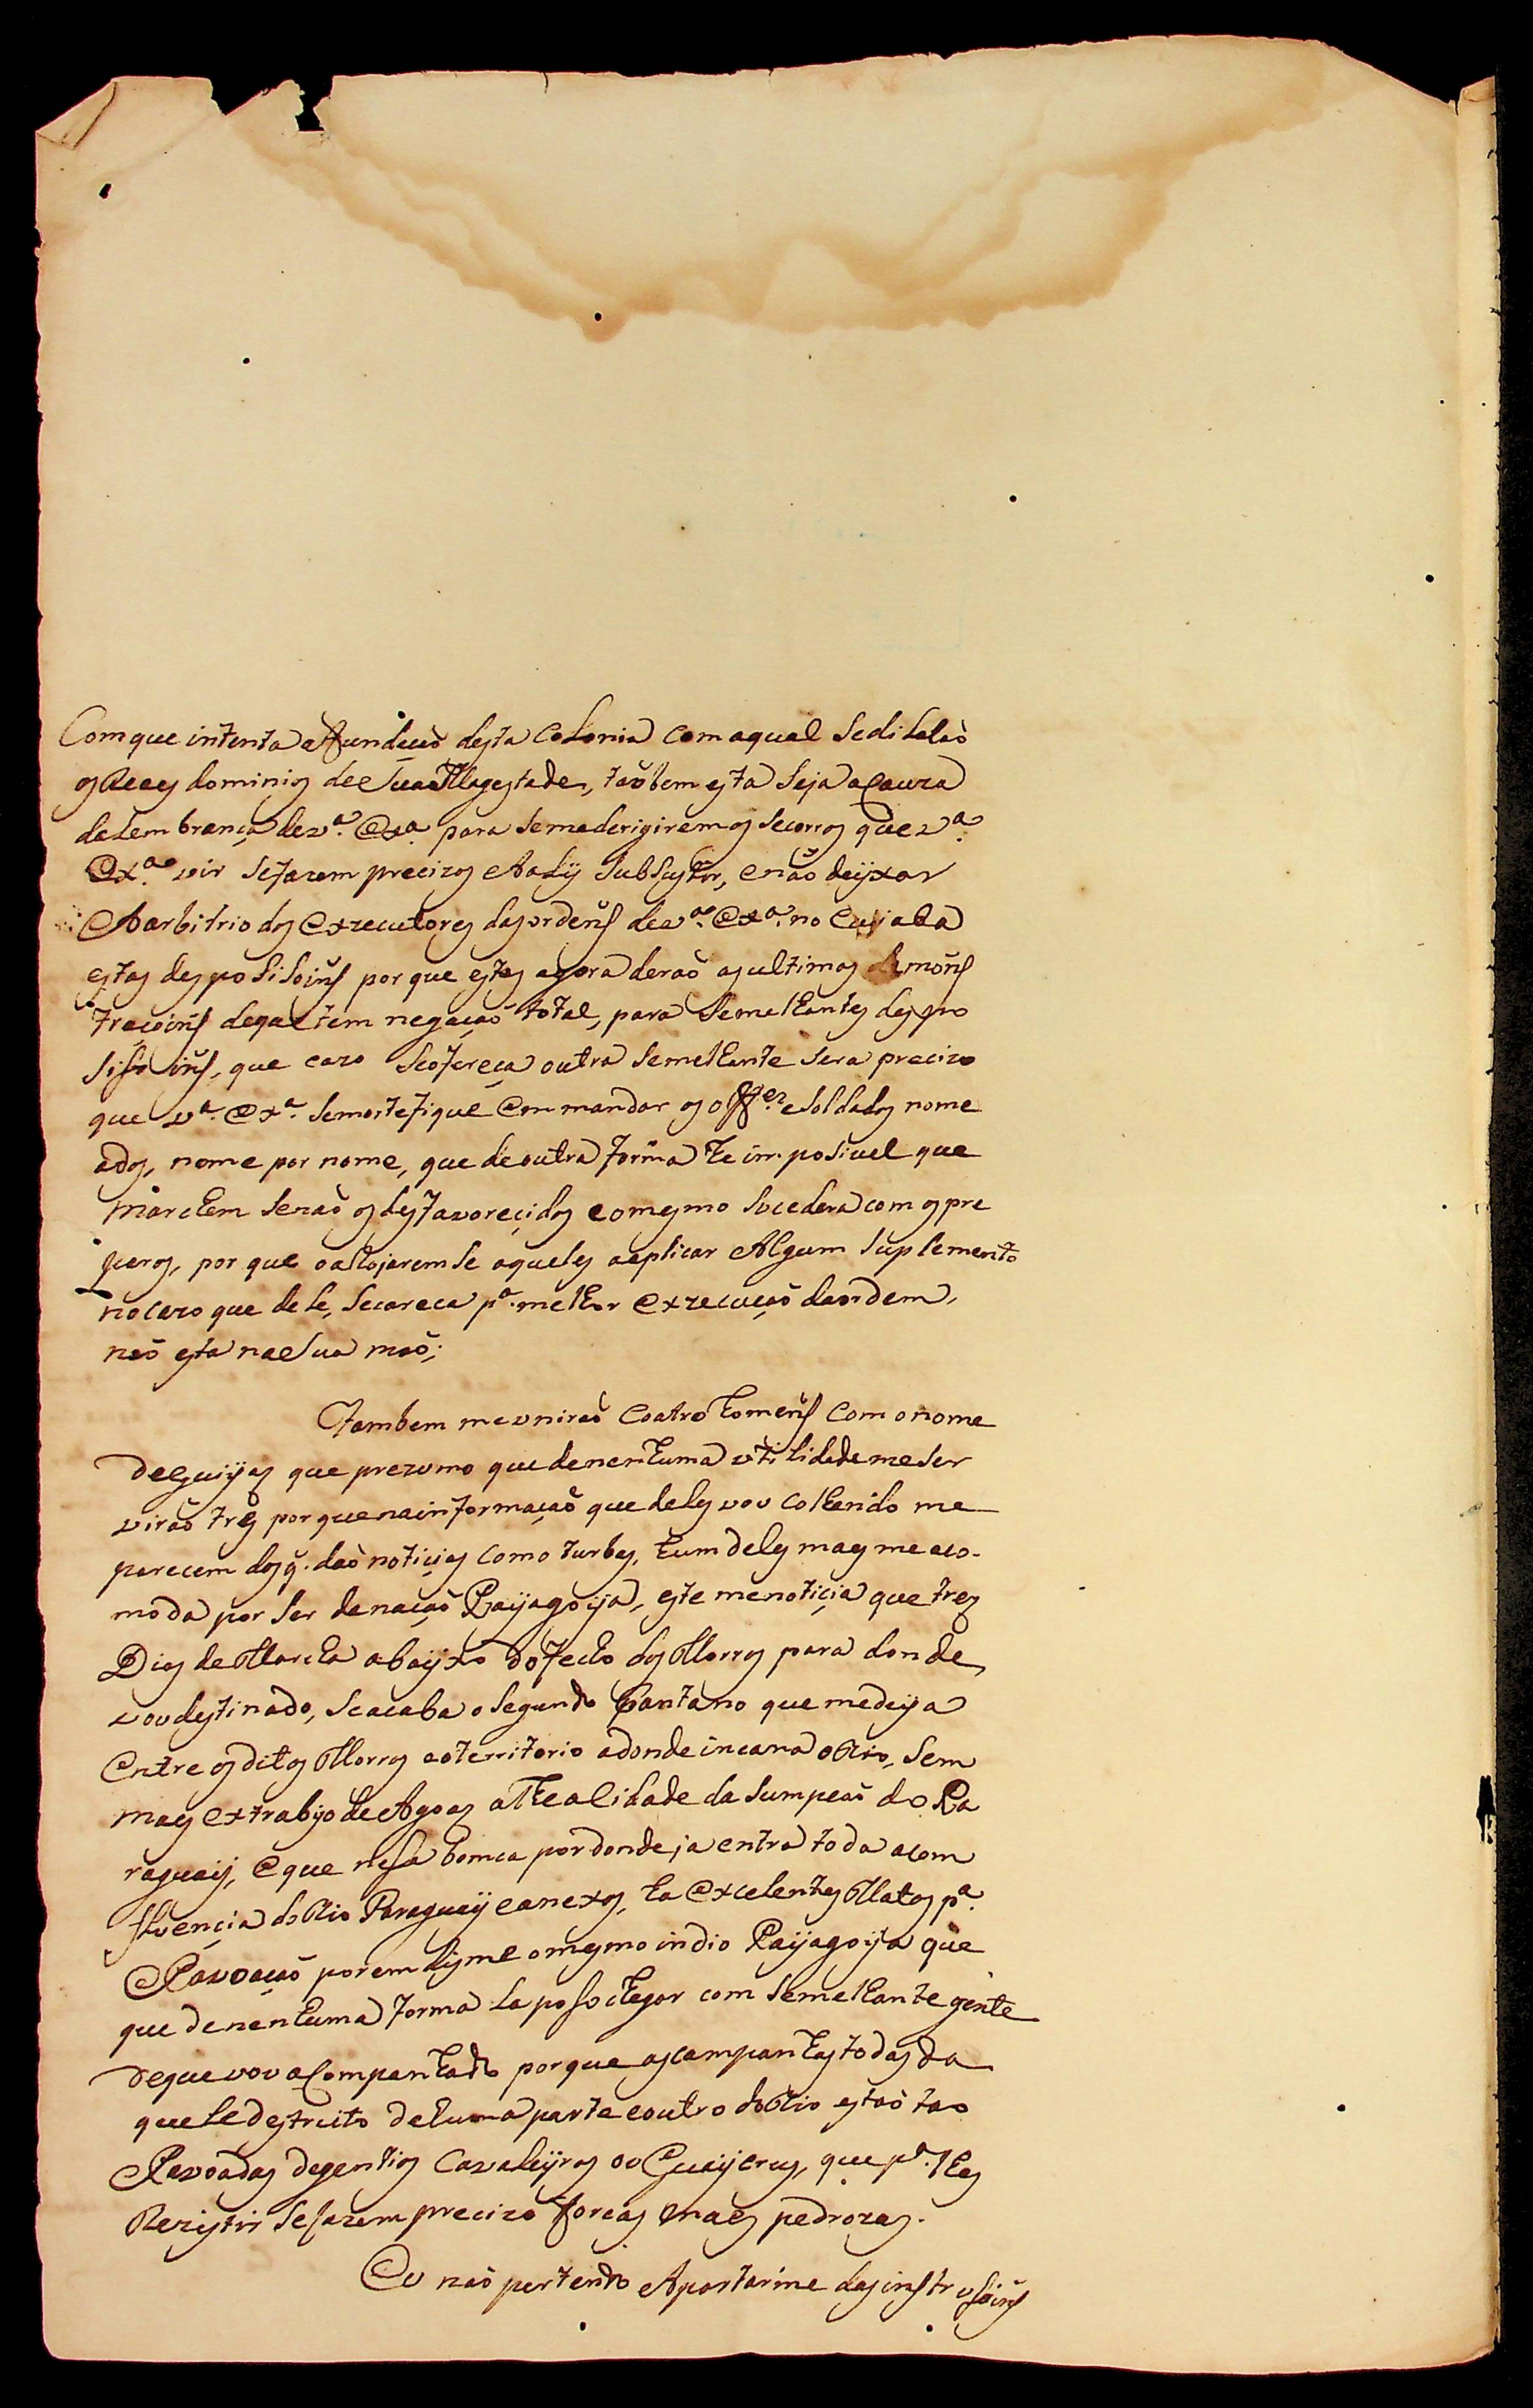 Com que intenta a fundaçaõ desta Colonia com a qual se dilataõ
os Reaes dominios de Sua Magestade, taõbem esta Seja a Cauza
da Lembrança de v.ª Ex.ª para se me derigirem os Secorros que v.ª
Ex.ª vir se fazem precizos e Aly Subsystir, e naõ deyxar
Ao arbitrio dos Executores das ordens de v.ª Ex.ª no Cuyaba
estas desposisoins por que estes agora deraõ as ultimas demons
traçoins de que tem negaçaõ total, para Semelhantes despo
sisoins, que cazo Se ofereça outra Semelhante Sera precizo
que v.ª Ex.ª Se mortefique Em mandar os off.es e Soldados nome
ados, nome por nome, que de outra forma he imposivel que
marchem Senaõ os desfavoreçidos e o mesmo Sucedera com os pre
por que aqueles a aplicar Algum Suplemento
no cazo que dele Se careca p.ª melhor Execuçaõ da ordem,
naõ esta na Sua maõ;
Tambem me vniraõ Coatro homens Com o nome
de Guiyas que prezumo que de nenhuma vtilidade me Ser
viraõ tres por que na informaçaõ que deles vou Colhendo me
parecem dos q. daõ notiçias Como turbas, hum deles mais me aco-
moda por Ser de naçaõ Payagoya, este me notiçia que tres
Dias de Marcha abayxo do fecho dos Morros para donde
vou destinado, Se acaba o Segundo Pantano que medeya
Entre os ditos Morros e o territorio adonde incana o Rio, Sem
mais extrabyo de Agoas athe a Cidade da Sumpçaõ do Pa
raguay, E que nesa bomca por donde ja entra toda a com
fluençia do Rio Paraguay e anexos, ha Excelentes Matos p.ª
Povoaçaõ porem dis me o mesmo indio Payagoya que
que de nenhuma forma La poso chegar com Semelhante gente
de que vou aCompanhado por que as campanhas todas da
quele destrito de huma parte e outro do Rio estaõ tao
Povoadas de gentios Cavaleyros ou Guaycrus, que p.ª lhes
Rezistir Se fazem precizo forças mais pedrozas.
Eu naõ pertendo Apartarme das instrusoins